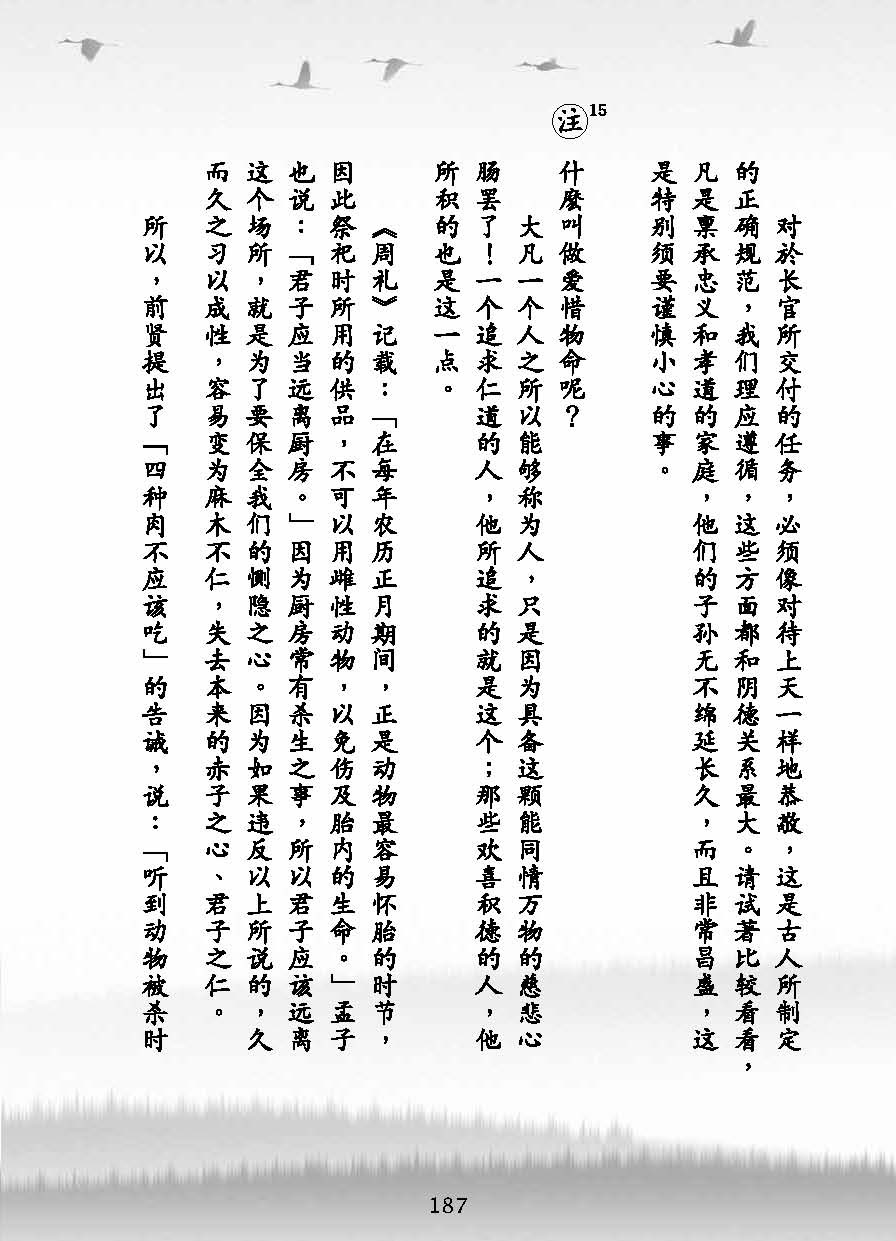 对於长官所交付的任务，必须像对待上天一样地恭敬，这是古人所制定
的正确规范，我们理应遵循，这些方面都和阴德关系最大。请试著比较看看，
凡是禀承忠义和孝道的家庭，他们的子孙无不绵延长久，而且非常昌盛，这
是特别须要谨慎小心的事。
注15
什麼叫做爱惜物命呢？
大凡一个人之所以能够称为人，只是因为具备这颗能同情万物的慈悲心
肠罢了！一个追求仁道的人，他所追求的就是这个；那些欢喜积德的人，他
所积的也是这一点。
《周礼》记载：「在每年农历正月期间，正是动物最容易怀胎的时节，
因此祭祀时所用的供品，不可以用雌性动物，以免伤及胎内的生命。」孟子
也说：「君子应当远离厨房。」因为厨房常有杀生之事，所以君子应该远离
这个场所，就是为了要保全我们的恻隐之心。因为如果违反以上所说的，久
而久之习以成性，容易变为麻木不仁，失去本来的赤子之心、君子之仁。
所以，前贤提出了「四种肉不应该吃」的告诫，说：「听到动物被杀时
187